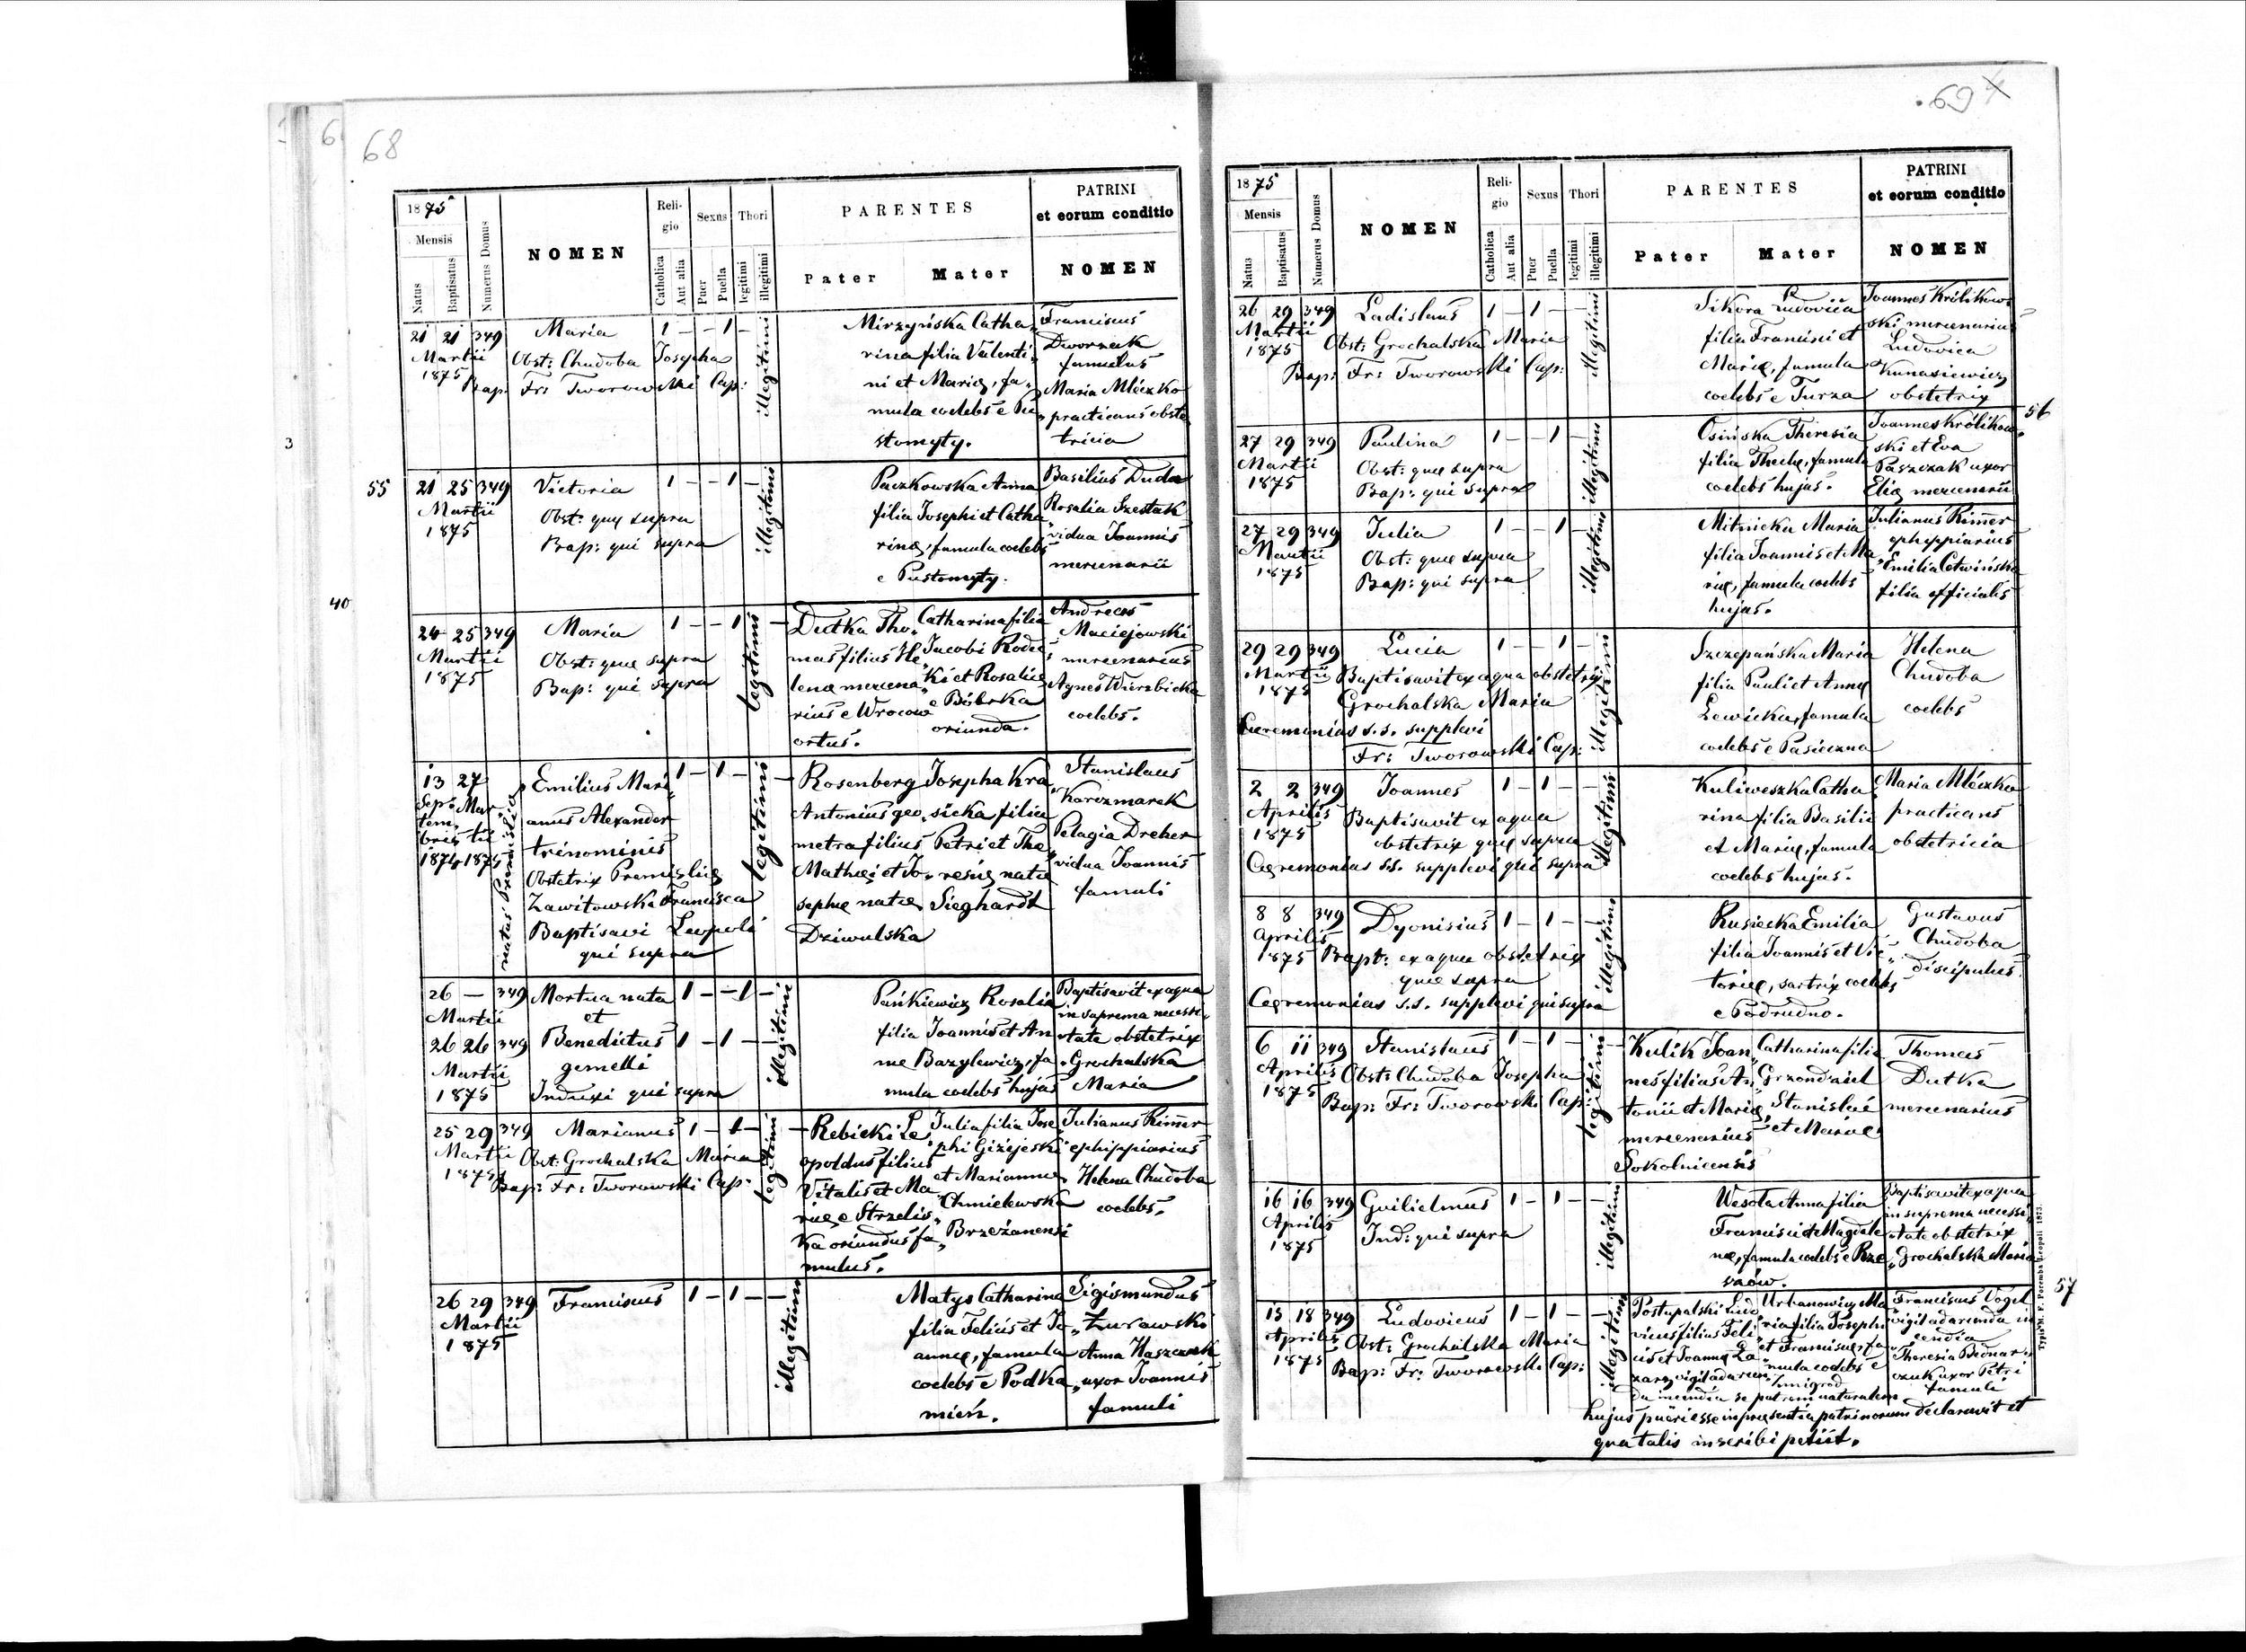 68
1875
Mensis
Natus
Baptisatus
Numerus Domus
NOMEN
Reli-
gio
Catholica
Aut alia
Sexus
Puer
Puella
Thori
legitimi
illegitimi
PARENTES
Pater
Mater
PATRINI
et eorum conditio
NOMEN
21 21 349 Maria 1 – – 1 –
Martii
1875
Obst: Chudoba Josepha
Bap. Fr: Tworowski Cap:
illegitimi
Mirzyńska Catha„
rina filia Valenti„
ni et Mariæ, fa„
mula coelebs e Pu„
stomyty.
Franciscus
Dworzak
famulus
Maria Mléczko
practicans obste„
tricia
55
21 25 349 Victoria 1 – – 1 –
Martii
1875
Obst: quæ supra
Bap: qui supra
illegitimi
Paczkowska Anna
filia Josephi et Catha„
rinæ, famula coelebs
e Pustomyty.
Basilius Duda
Rosalia Szestak
vidua Joannis
mercenarii
40
24 25 349 Maria 1 – – 1 –
Martii
1875
Obst: quæ supra
Bap: qui supra
legitimi
Dutka Tho„
mas filius He„
lenæ mercena„
rius e Wrocow
ortus.
Catharina filia
Jacobi Rodec„
ki et Rosaliæ
e Bóbrka
oriunda.
Andreas
Maciejowski
mercenarius
Agnes Wierzbicka
coelebs.
13 27
Sep„ Mar
tem„ tii
bris
1874 1875
natus Premisliæ
Emilius Mari„
anus Alexander
trinominis
Obstetrix Premisliæ
Zawitowska Francisca
Baptisavi Leopoli
qui supra
1 – 1 –
legitimi
Rosenberg
Antonius geo„
metra filius
Mathæi et Jo„
sephæ natæ
Dziwulska
Josepha Kra„
sicka filia
Petri et The„
resiæ natæ
Sieghardt
Stanislaus
Karczmarek
Pelagia Dreher
vidua Joannis
famuli
26 – 349 Mortua nata 1 – – 1 –
Martii
et
26 26 349 Benedictus 1 – 1 – –
Martii
1875
gemelli
Induxi qui supra
illegitimi
Pańkiewicz Rosalia
filia Joannis et An„
næ Bazylewicz, fa„
mula coelebs hujas
Baptisavit ex aqua
in suprema necessi„
tate obstetrix
Grochalska
Maria
25 29 349 Marianus 1 – 1 –
Martii
1875
Obst: Grochalska Maria
Bap: Fr: Tworowski Cap:
legitimi
Rebicki Le„
opoldus filius
Vitalis et Ma„
riæ, e Strzelis„
ka oriundus fa„
mulus.
Julia filia Jose„
phi Giżejeski
et Mariannæ
Chmielewska
Brzeżanensi
Julianus Rimer
ephippiarius
Helena Chudoba
coelebs.
26 29 349 Franciscus 1 – 1 – –
Martii
1875
illegitimi
Matys Catharina
filia Felicis et Jo„
annæ, famula
coelebs e Podka„
mień.
Sigismundus
Żurawski
Anna Haszczak
uxor Joannis
famuli
69
1875
Mensis
Natus
Baptisatus
Numerus Domus
NOMEN
Reli-
gio
Catholica
Aut alia
Sexus
Puer
Puella
Thori
legitimi
illegitimi
PARENTES
Pater
Mater
PATRINI
et eorum conditio
NOMEN
26 29 349 Ladislaus 1 – 1 – –
Martii
1875
Obst: Grochalska Maria
Bap: Fr: Tworowski Cap:
illegitimi
Sikora Ludovica
filia Francisci et
Mariæ, famula
coelebs e Turza
Joannes Królikow„
ski mercenarius
Ludovica
Kunasiewicz
obstetrix
56
27 29 349 Paulina 1 – – 1 –
Martii
1875
Obst: quæ supra
Bap: qui supra
illegitimi
Osińska Theresia
filia Theclæ, famula
coelebs hujas.
Joannes Królikow„
ski et Eva
Paszczak uxor
Eliæ mercenarii
27 29 349 Julia 1 – – 1 –
Martii
1875
Obst: quæ supra
Bap: qui supra
illegitimi
Mitnicka Maria
filia Joannis et Ma„
riæ, famula coelebs
hujas.
Julianus Rimer
ephippiarius
Emilia Cetwińska
filia officialis
29 29 349 Lucia 1 – – 1 –
Martii
1875
Baptisavit ex aqua obstetrix
Grochalska Maria
Cæremonias s.s. supplevi
Fr: Tworowski Cap:
illegitimi
Szczepańska Maria
filia Pauli et Annæ
Lewicka, famula
coelebs e Pasieczna
Helena
Chudoba
coelebs
2 2 349 Joannes 1 – 1 – –
Aprilis
1875
Baptisavit ex aqua
obstetrix quæ supra
Cæremonias s.s. supplevi qui supra
illegitimi
Kuliweszka Catha„
rina filia Basilii
et Mariæ, famula
coelebs hujas.
Maria Mléczko
practicans
obstetricia
8 8 349 Dyonisius 1 – 1 – –
Aprilis
1875
Bapt: ex aqua obstetrix
quæ supra
Cæremonias s.s. supplevi qui supra
illegitimi
Rusiecka Emilia
filia Joannis et Vic„
toriæ, sartrix coelebs
e Podrudno.
Gustavus
Chudoba
discipulus
6 11 349 Stanislaus 1 – 1 –
Aprilis
1875
Obst: Chudoba Josepha
Bap: Fr: Tworowski Cap:
legitimi
Kulik Joan„
nes filius An„
tonii et Mariæ
mercenarius
Sokolnicensis
Catharina filia
Grzondziel
Stanislai
et Mariæ
Thomas
Dutka
mercenarius
16 16 349 Guilielmus 1 – 1 – –
Aprilis
1875
Ind: qui supra
illegitimi
Wesoła Anna filia
Francisci et Magdale„
næ, famula coelebs e Rze„
szów.
Baptisavit ex aqua
in suprema necessi„
tate obstetrix
Grochalska Maria
57
13 18 349 Ludovicus 1 – 1 – –
Aprilis
1875
Obst: Grochalska Maria
Bap: Fr: Tworowski Cap:
illegitimi
Postupalski Ludo„
vicus filius Feli„
cis et Joannæ
Urbanowicz Ma„
ria filia Josephi
et Franciscæ, fa„
mula coelebs e
Żmigrod
se patrem naturalem
hujus pueri esse in præsentia patrinorum declaravit et
qua talis inscribi petiit.
Franciscus Vogel
vigil ad arcenda in„
cendia
Theresia Bednar„
czuk uxor Petri
famuli
Typis M. F. Poremba Leopoli 1873.